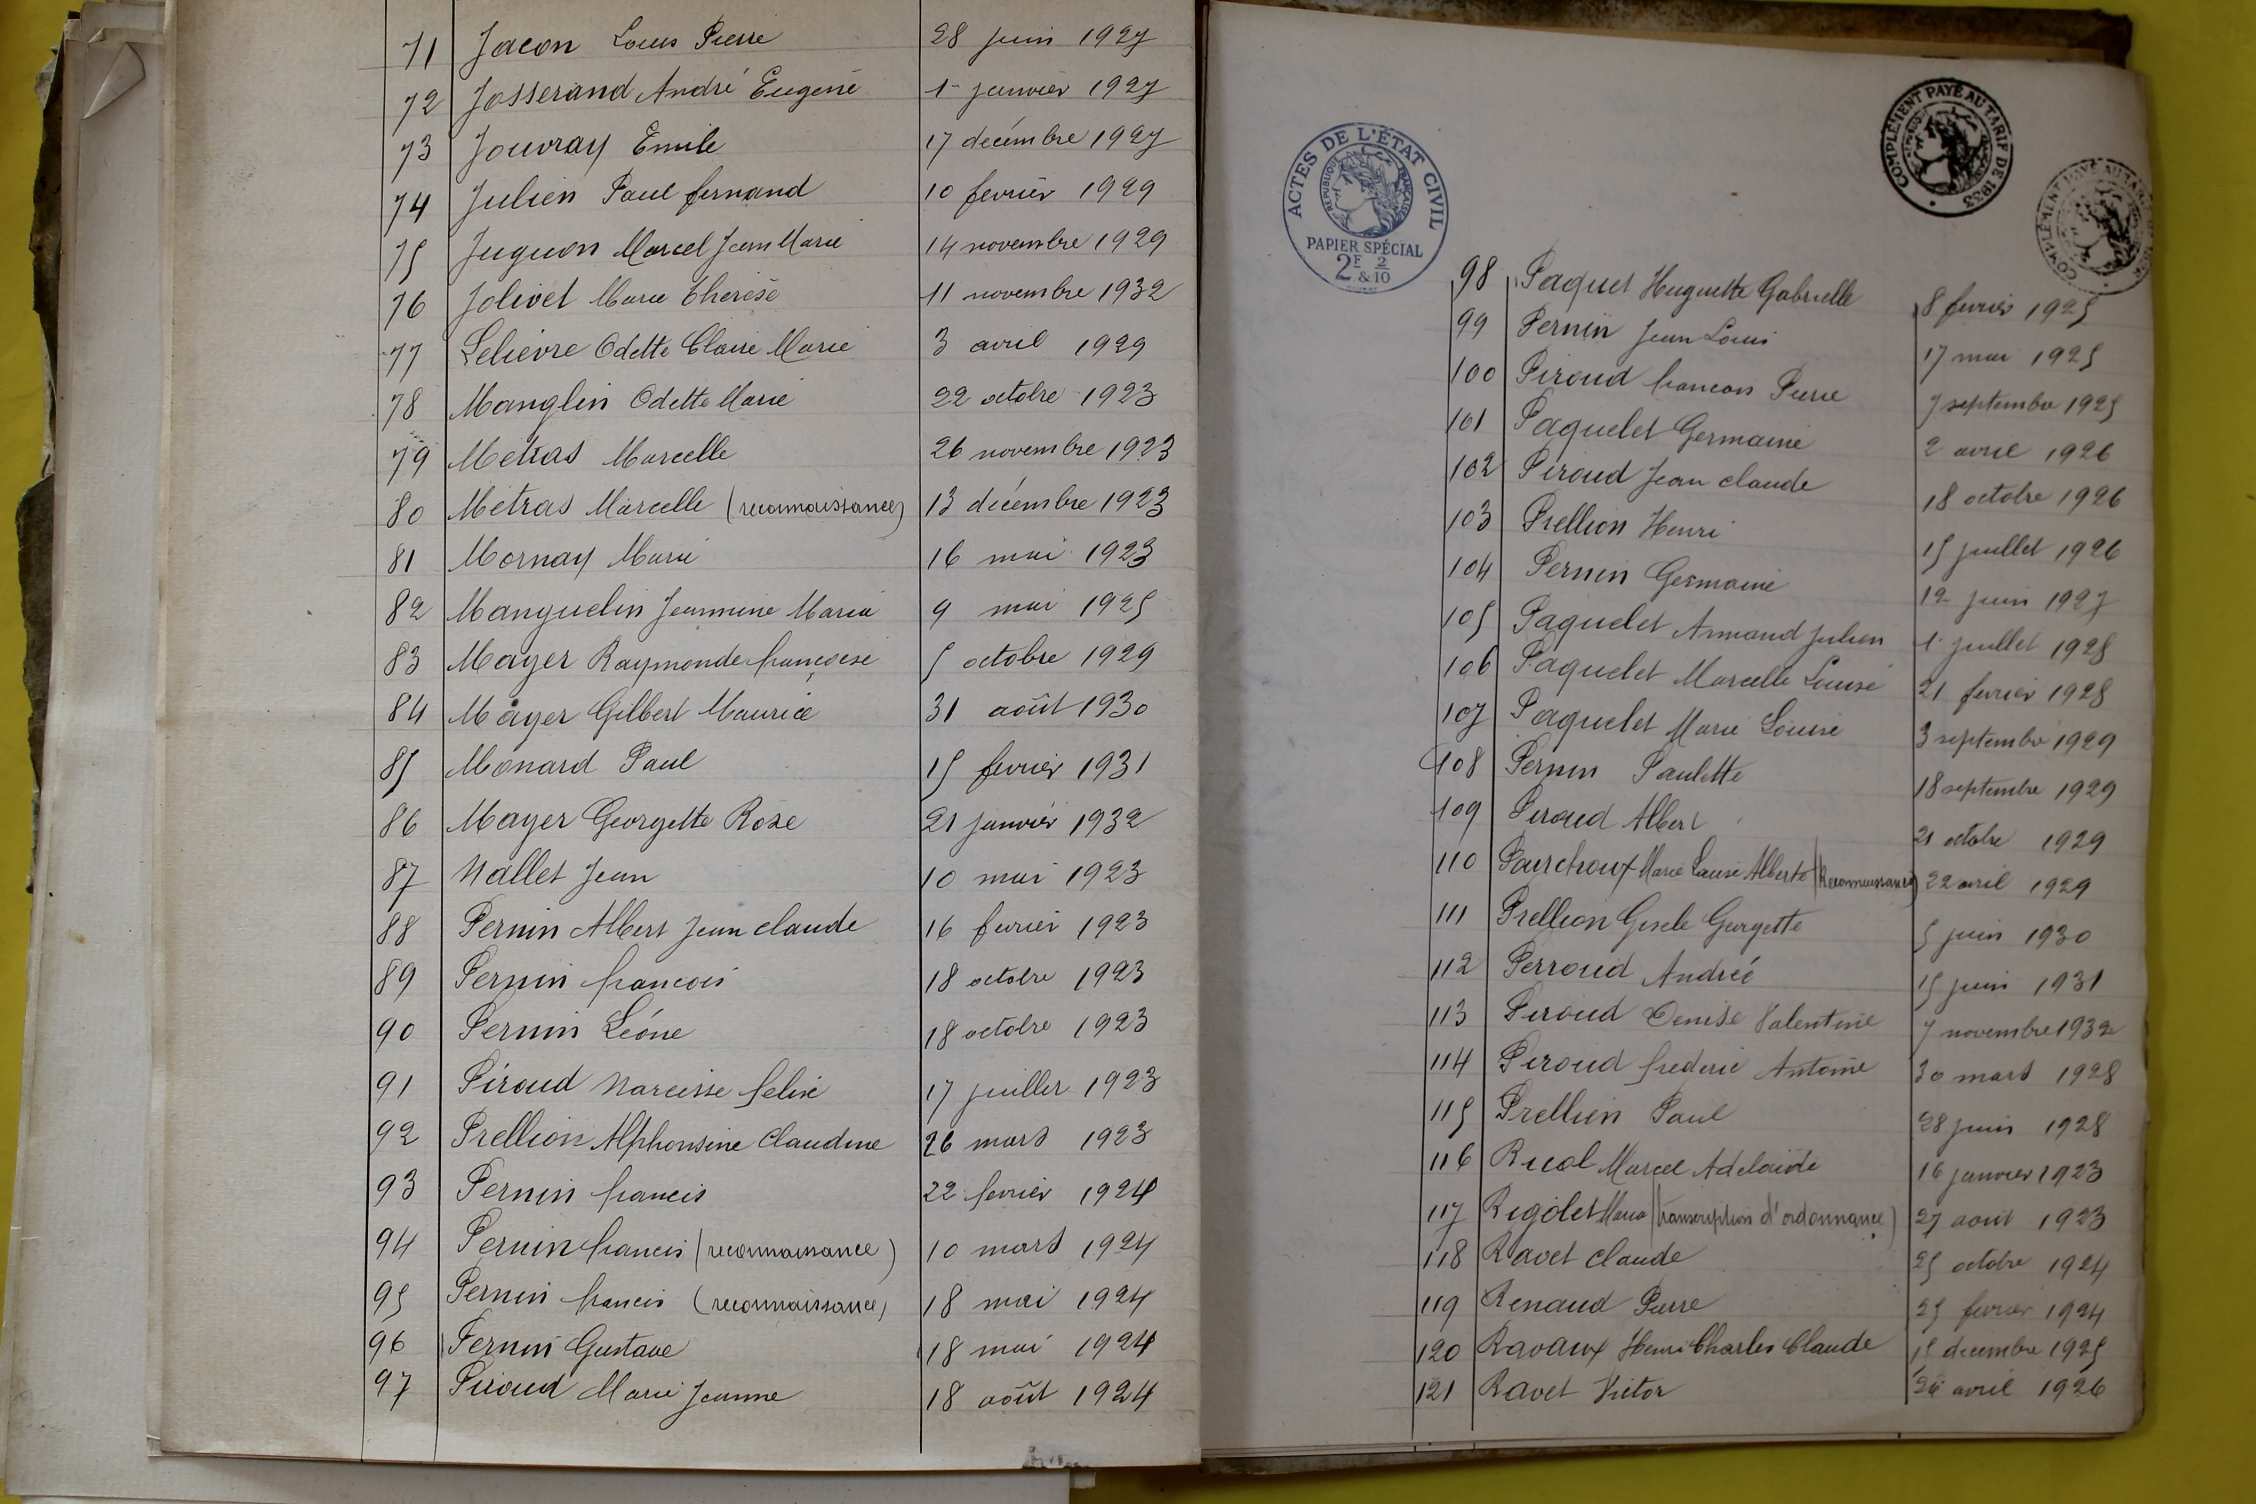 71 Jacon Louis Pierre 28 juin 1927
72 Josserand André Eugène 1er janvier 1927
73 Jouvray Emile 17 decémbre 1927
74 Julien Paul fernand 10 fevrier 1929
75 Juguon Marcel Jean Marie 14 novembre 1929
76 Jolivet Marie Therèse 11 novembre 1932
77 Lelièvre Odette Claire Marie 3 avril 1929
78 Manglin Odette Marie 22 octobre 1923
79 Metras Marcelle 26 novembre 1923
80 Métras Marcelle (reconnaissance) 13 décembre 1923
81 Mornay Marie 16 mai 1923
82 Manguelin Jeannine Maria 9 mai 1925
83 Mayer Raymonde françoise 5 octobre 1929
84 Mayer Gilbert Maurice 31 août 1930
85 Monard Paul 15 fevrier 1931
86 Mayer Georgette Rose 21 janvier 1932
87 Nallet Jean 10 mai 1923
88 Pernin Albert Jean claude 16 fevrier 1923
89 Pernin francois 18 octobre 1923
90 Pernin Léone 18 octobre 1923
91 Piroud Narcisse felix 17 juillet 1923
92 Prellion Alphonsine Claudine 26 mars 1923
93 Pernin francis 22 fevrier 1924
94 Pernin francis (reconnaissance) 10 mars 1924
95 Pernin francis (reconnaissance) 18 mai 1924
96 Pernin Gustave 18 mai 1924
97 Piroud Marie Jeanne 18 août 1924
ACTES DE L'ÉTAT CIVIL
RÉPUBLIQUE FRANÇAISE
PAPIER SPÉCIAL
2F & 2/10
COMPLÉMENT PAYÉ AU TARIF DE 1933
COMPLÉMENT PAYÉ AU TARIF DE 1933
98 Paquet Huguette Gabrielle 8 fevrier 1925
99 Pernin Jean Louis 17 mai 1925
100 Piroud francois Pierre 7 septembre 1925
101 Paquelet Germaine 2 avril 1926
102 Piroud Jean claude 18 octobre 1926
103 Prellion Henri 15 juillet 1926
104 Pernin Germaine 12 juin 1927
105 Paquelet Armand Julien 1er juillet 1928
106 Paquelet Marcelle Louise 21 fevrier 1928
107 Paquelet Marie Louise 3 septembre 1929
108 Pernin Paulette 18 septembre 1929
109 Piroud Albert 21 octobre 1929
110 Pourchoux Marie Louise Alberte (Reconnaissance) 22 avril 1929
111 Prellion Gisele Georgette 5 juin 1930
112 Perroud Andrée 15 juin 1931
113 Piroud Denise Valentine 7 novembre 1932
114 Piroud frederic Antoine 30 mars 1928
115 Prellion Paul 28 juin 1928
116 Ruol Marcel Adelaide 16 janvier 1923
117 Rigolet Maria (transcription d'ordonnance) 27 août 1923
118 Ravet Claude 25 octobre 1924
119 Renaud Pierre 25 fevrier 1924
120 Ravaux Henri Charles Claude 15 decembre 1925
121 Ravet Victor avril 1926